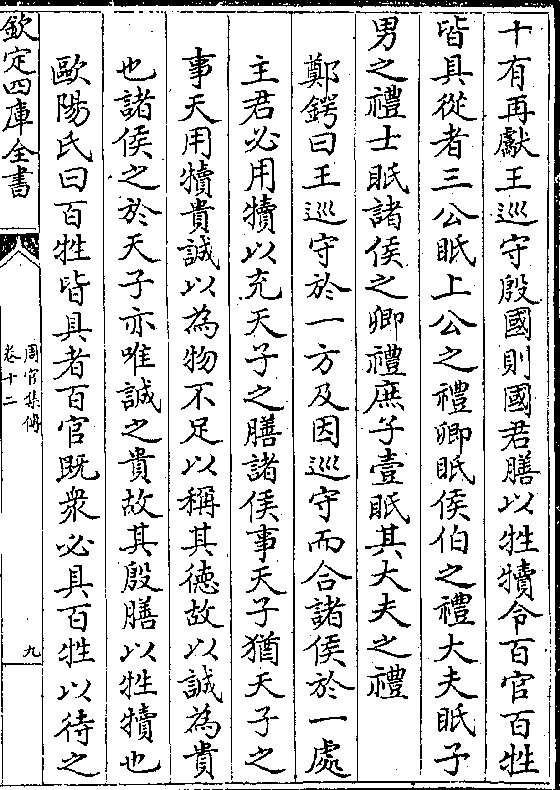 十有再獻王巡守殷國則國君膳以牲犢令百官百牲
皆具從者三公眡上公之禮卿眡侯伯之禮大夫眡子
男之禮士眡諸侯之卿禮庶子壹眡其大夫之禮
鄭鍔曰王巡守於一方及因巡守而合諸侯於一處
主君必用犢以充天子之膳諸侯事天子猶天子之
事天用犢貴誠以為物不足以稱其徳故以誠為貴
也諸侯之於天子亦唯誠之貴故其殷膳以牲犢也
歐陽氏曰百牲皆具者百官既衆必具百牲以待之
欽定四庫全書
周官集傳
卷十二
九